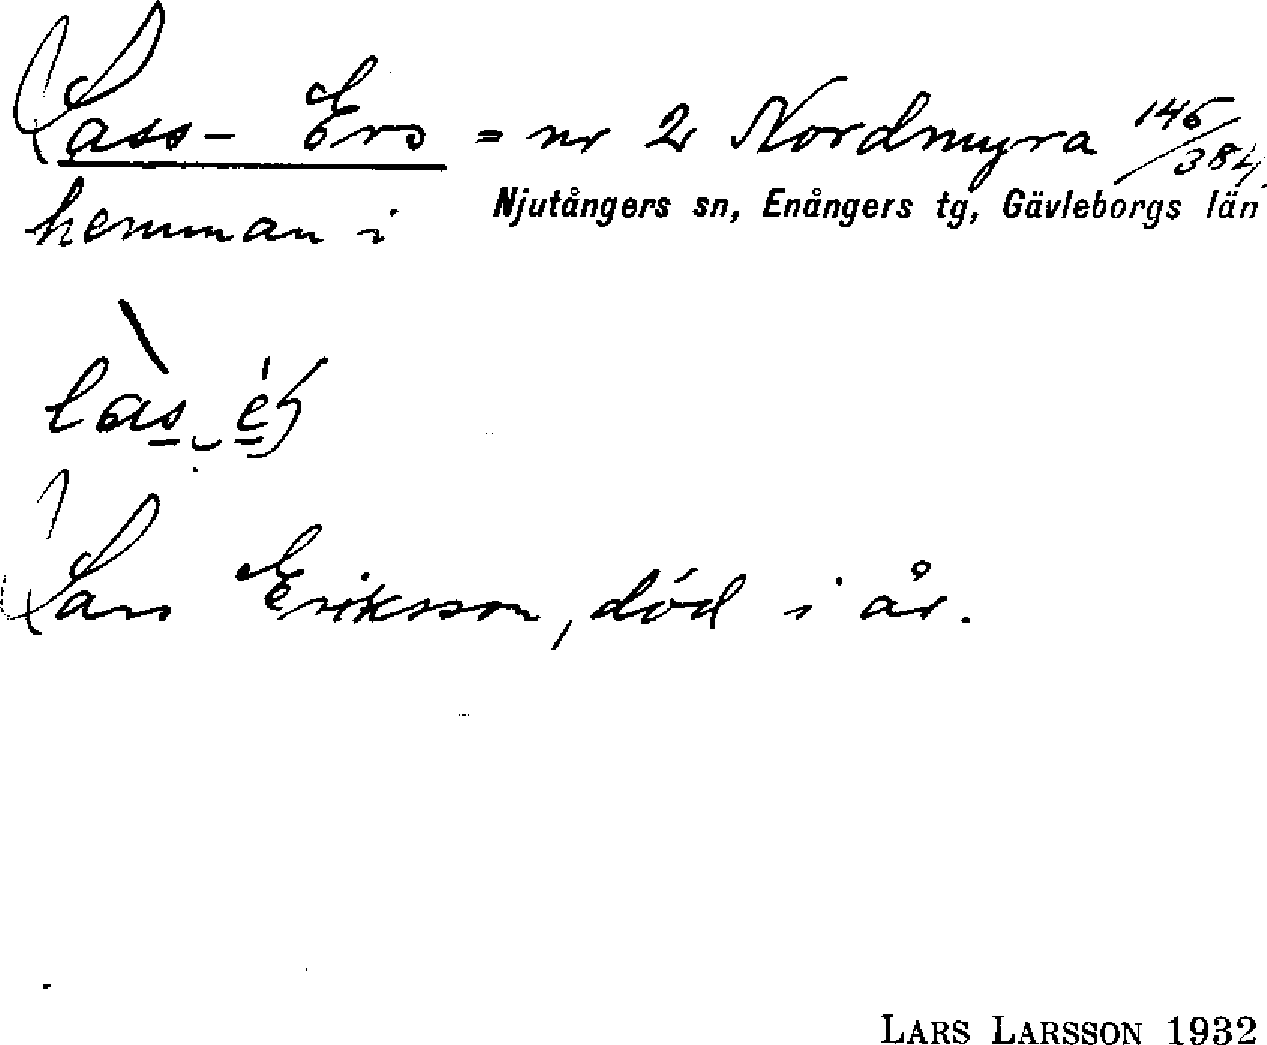 Lass-Ers = nr 2 Nordmyra 146/384
hemman i Njutångers sn, Enångers tg, Gävleborgs län
Lars Eriksson, död i år.
LARS LARSSON 1932